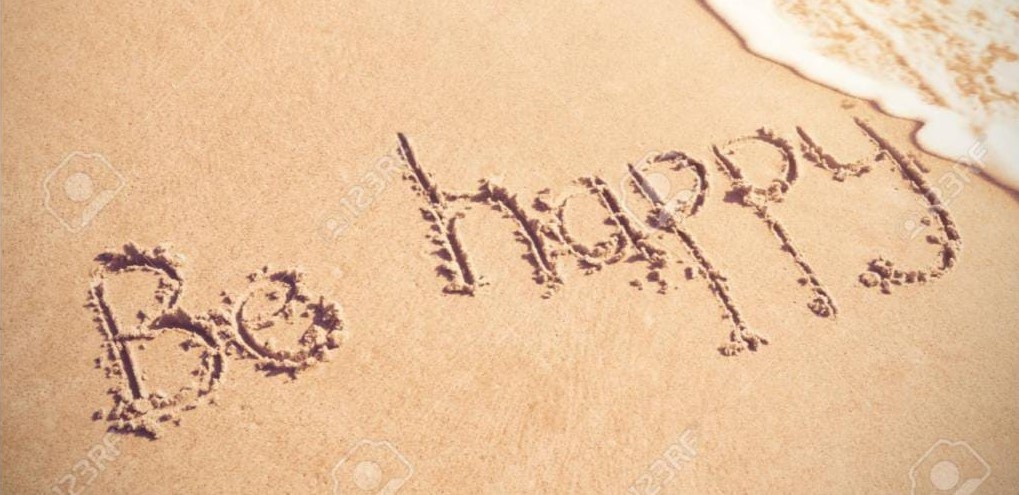 Be happy
123RF
123RF
123RF
123RF